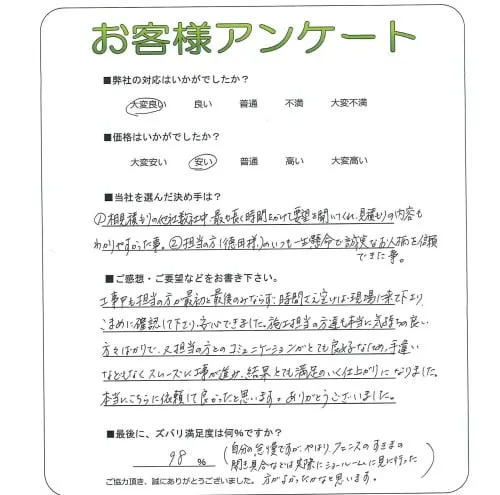 お客様アンケート
■弊社の対応はいかがでしたか？
大変良い 良い 普通 不満 大変不満
■価格はいかがでしたか？
大変安い 安い 普通 高い 大変高い
■当社を選んだ決め手は？
①相見積もりの他社数社中、最も長く時間をかけて要望を聞いてくれ、見積もりの内容も
わかりやすかった事。②担当の方(徳田様)のいつも一生懸命で誠実なお人柄を信頼
できた事。
■ご感想・ご要望などをお書き下さい。
工事中も担当の方が最初と最後のみならず、時間でえ空けば現場に来て下さり
こまめに確認して下さり、安心できました。施工担当の方達も本当に気持ちの良い
方々ばかりで、又担当の方とのコミュニケーションがとても良好なため、手違い
などもなくスムーズに工事が進み、結果とても満足のいく仕上がりになりました。
本当にこちらに依頼して良かったと思います。ありがとうございました。
■最後に、ズバリ満足度は何%ですか？
98 %
(自分の怠慢ですが、やはり、フェンスのすきまの
開き具合などは実際にショールームに見に行った
方がよかったかなと思います。)
ご協力頂き、誠にありがとうございました。